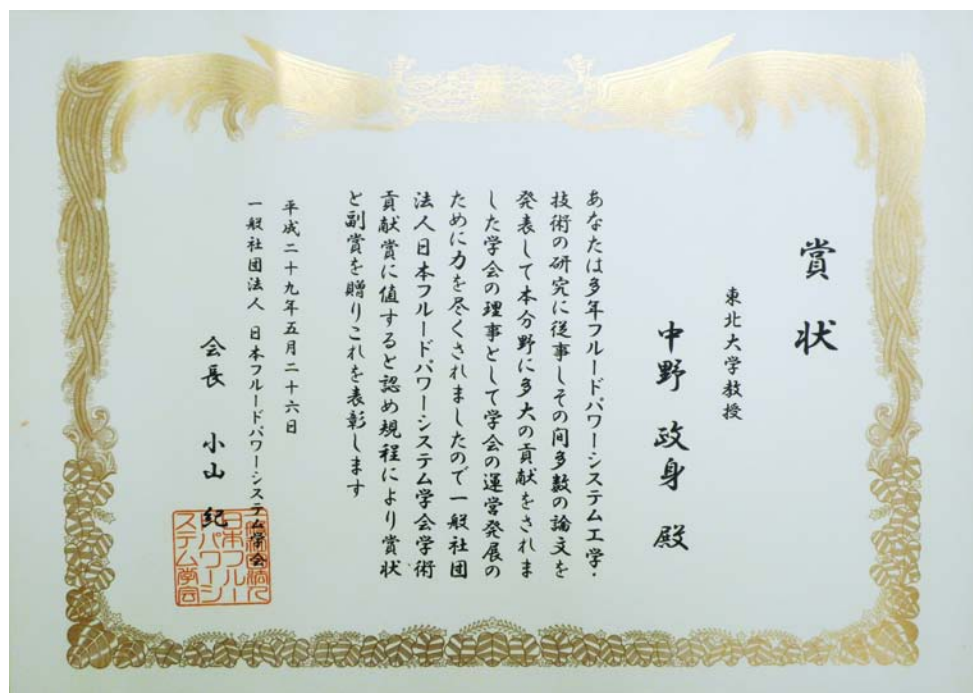 賞状
東北大学教授
中野 政身 殿
あなたは多年フルードパワーシステム工学・
技術の研究に従事しその間多数の論文を
発表して本分野に多大の貢献をされま
した学会の理事として学会の運営発展の
ために力を尽くされましたので一般社団
法人日本フルードパワーシステム学会学術
貢献賞に値すると認め規程により賞状
と副賞を贈りこれを表彰します
平成二十九年五月二十六日
一般社団法人 日本フルードパワーシステム学会
会長 小山 紀